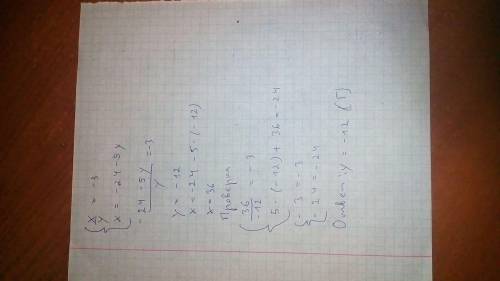 { x/y = -3
{ x = -24 - 5y
(-24 - 5y)/y = -3
y = -12
x = -24 - 5·(-12)
x = 36
Проверка
{ 36/-12 = -3
{ 5·(-12) + 36 = -24
{ -3 = -3
{ -24 = -24
Ответ: y = -12 (Г)